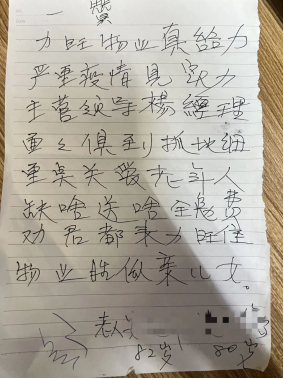 一 赞
力旺物业真给力
严重疫情见实力
主营领导楊經理
面面俱到抓地细
重点关爱老年人
缺啥送啥全免费
劝君都来力旺住
物业胜似亲儿女。
老人
82岁 80岁